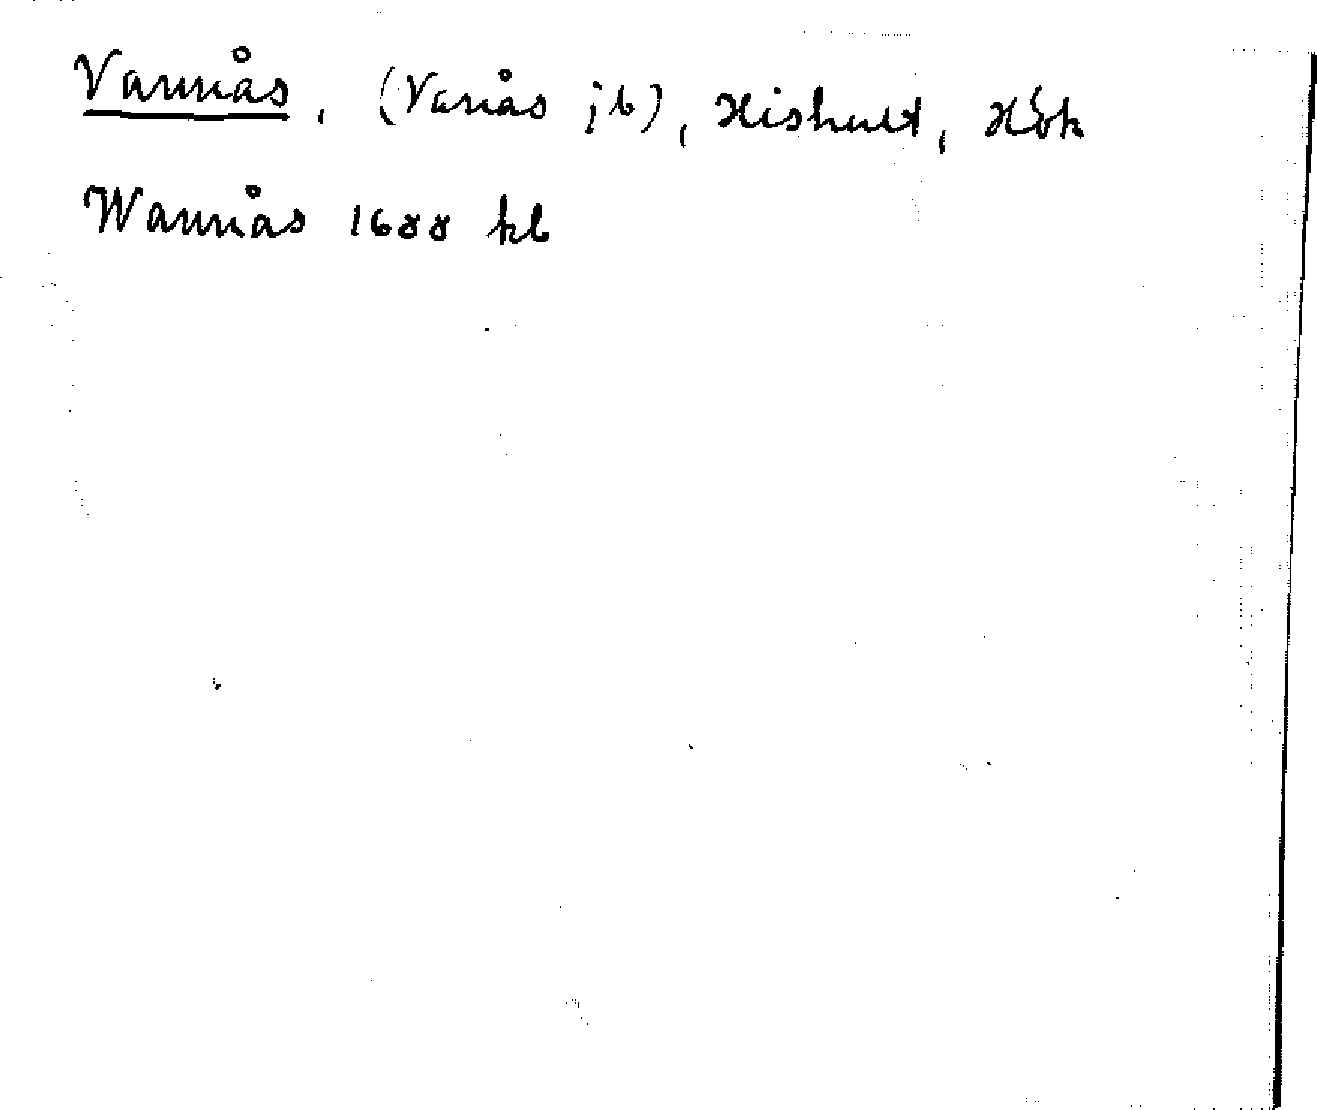 Vannås, (Vanås jb), Hishult, Hök
Wannås 1688 kb